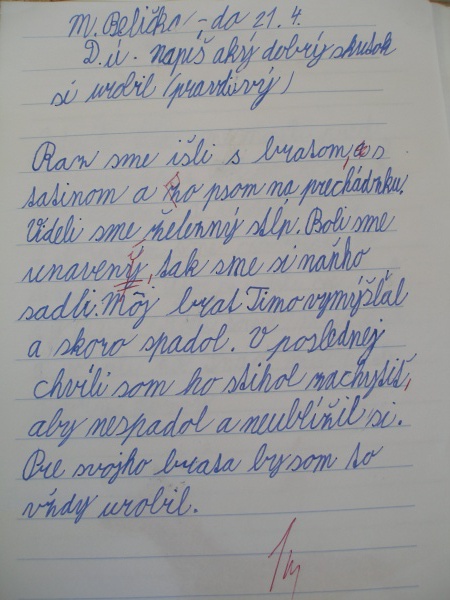 M. Belička - do 21. 4.
D. ú. - napíš aký dobrý skutok
si urobil (pravdivý)
Raz sme išli s bratom, s
tatinom a so psom na prechádzku.
Videli sme železný stĺp. Boli sme
unavený, tak sme si naňho
sadli. Môj brat Timo vymýšľal
a skoro spadol. V poslednej
chvíli som ho stihol zachytiť,
aby nespadol a neublížil si.
Pre svojho brata by som to
vždy urobil.